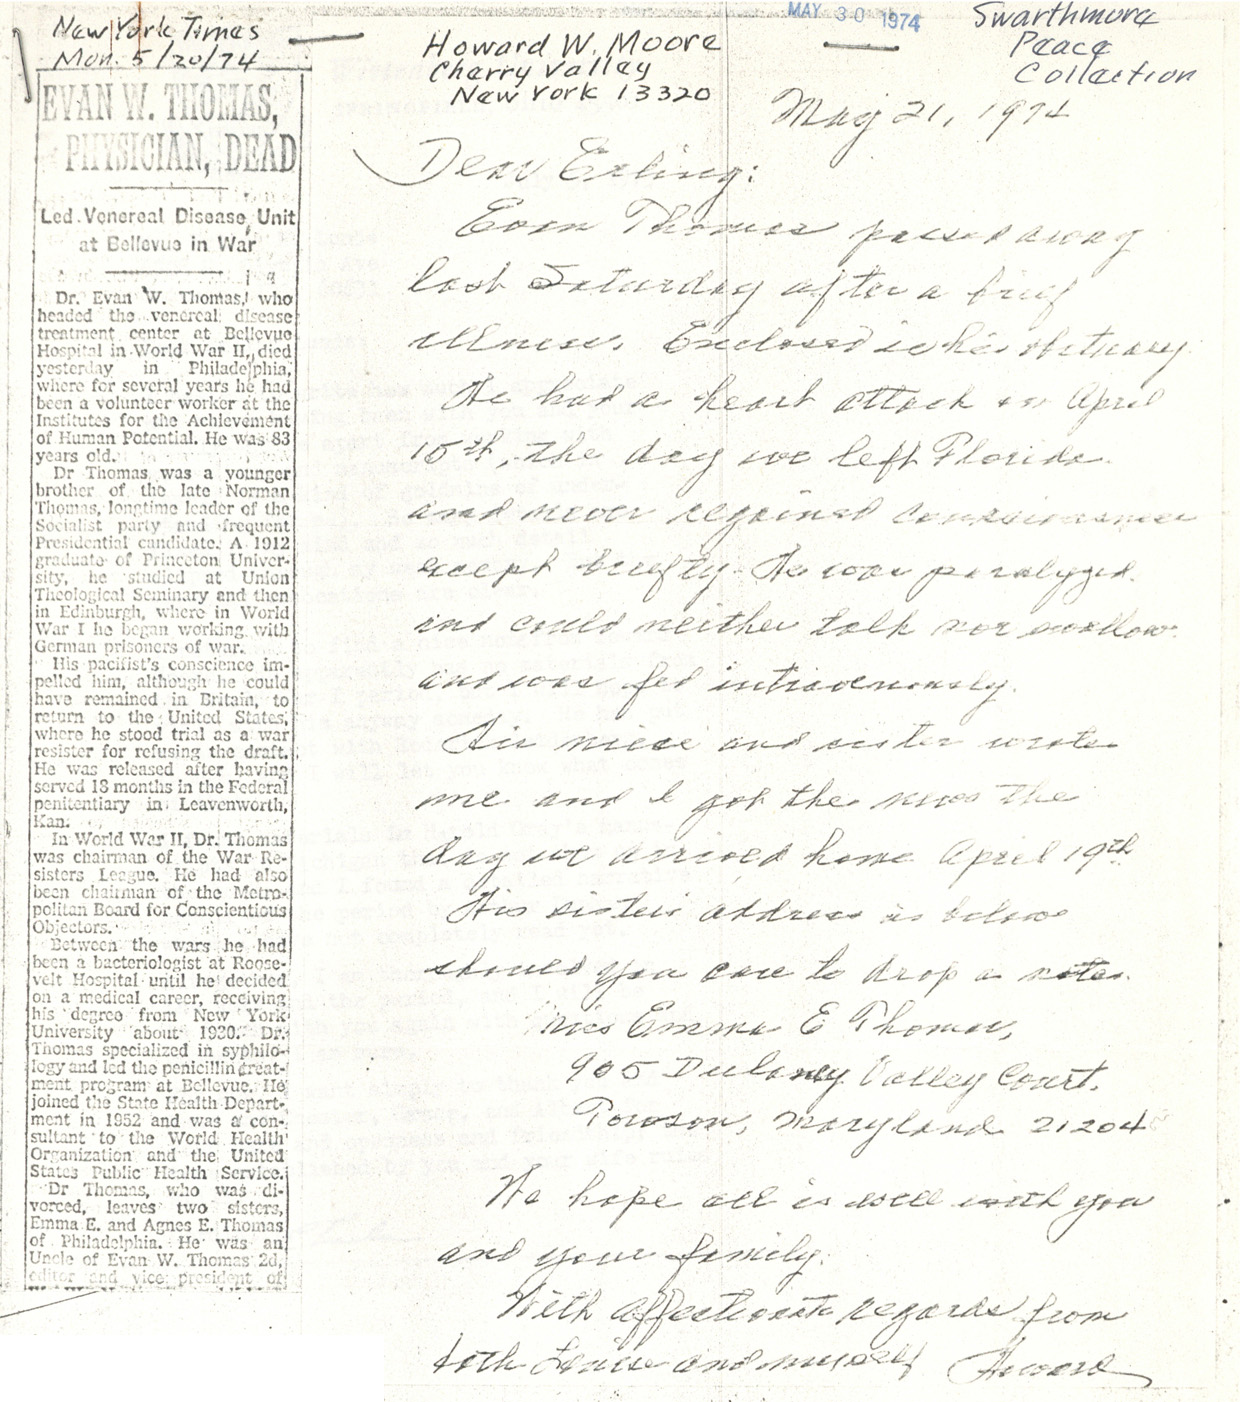 New York Times
Mon. 5/20/74
EVAN W. THOMAS,
PHYSICIAN, DEAD
Led Venereal Disease Unit
at Bellevue in War
Dr. Evan W. Thomas, who
headed the venereal disease
treatment center at Bellevue
Hospital in World War II, died
yesterday in Philadelphia,
where for several years he had
been a volunteer worker at the
Institutes for the Achievement
of Human Potential. He was 83
years old.
Dr Thomas was a younger
brother of the late Norman
Thomas, longtime leader of the
Socialist party and frequent
Presidential candidate. A 1912
graduate of Princeton Univer-
sity, he studied at Union
Theological Seminary and then
in Edinburgh, where in World
War I he began working with
German prisoners of war.
His pacifist's conscience im-
pelled him, although he could
have remained in Britain, to
return to the United States,
where he stood trial as a war
resister for refusing the draft.
He was released after having
served 18 months in the Federal
penitentiary in Leavenworth,
Kan.
In World War II, Dr. Thomas
was chairman of the War Re-
sisters League. He had also
been chairman of the Metro-
politan Board for Conscientious
Objectors.
Between the wars he had
been a bacteriologist at Roose-
velt Hospital until he decided
on a medical career, receiving
his degree from New York
University about 1930. Dr.
Thomas specialized in syphilo-
logy and led the penicillin treat-
ment program at Bellevue. He
joined the State Health Depart-
ment in 1952 and was a con-
sultant to the World Health
Organization and the United
States Public Health Service.
Dr Thomas, who was di-
vorced, leaves two sisters,
Emma E. and Agnes E. Thomas
of Philadelphia. He was an
Uncle of Evan W. Thomas 2d,
editor and vice president of
MAY 30 1974
Howard W. Moore
Cherry Valley
New York 13320
Swarthmore
Peace
Collection
May 21, 1974
Dear Erling:
Evan Thomas passed away
last Saturday after a brief
illness. Enclosed is his obituary.
He had a heart attack on April
15th, the day we left Florida
and never regained consciousness
except briefly. He was paralyzed
and could neither talk nor swallow
and was fed intravenously.
His niece and sister wrote
me and I got the news the
day we arrived home April 19th
His sister's address is below
should you care to drop a note.
Miss Emma E Thomas,
905 Dulaney Valley Court,
Towson, Maryland 21204
We hope all is well with you
and your family.
With affectionate regards from
both Louise and myself Howard